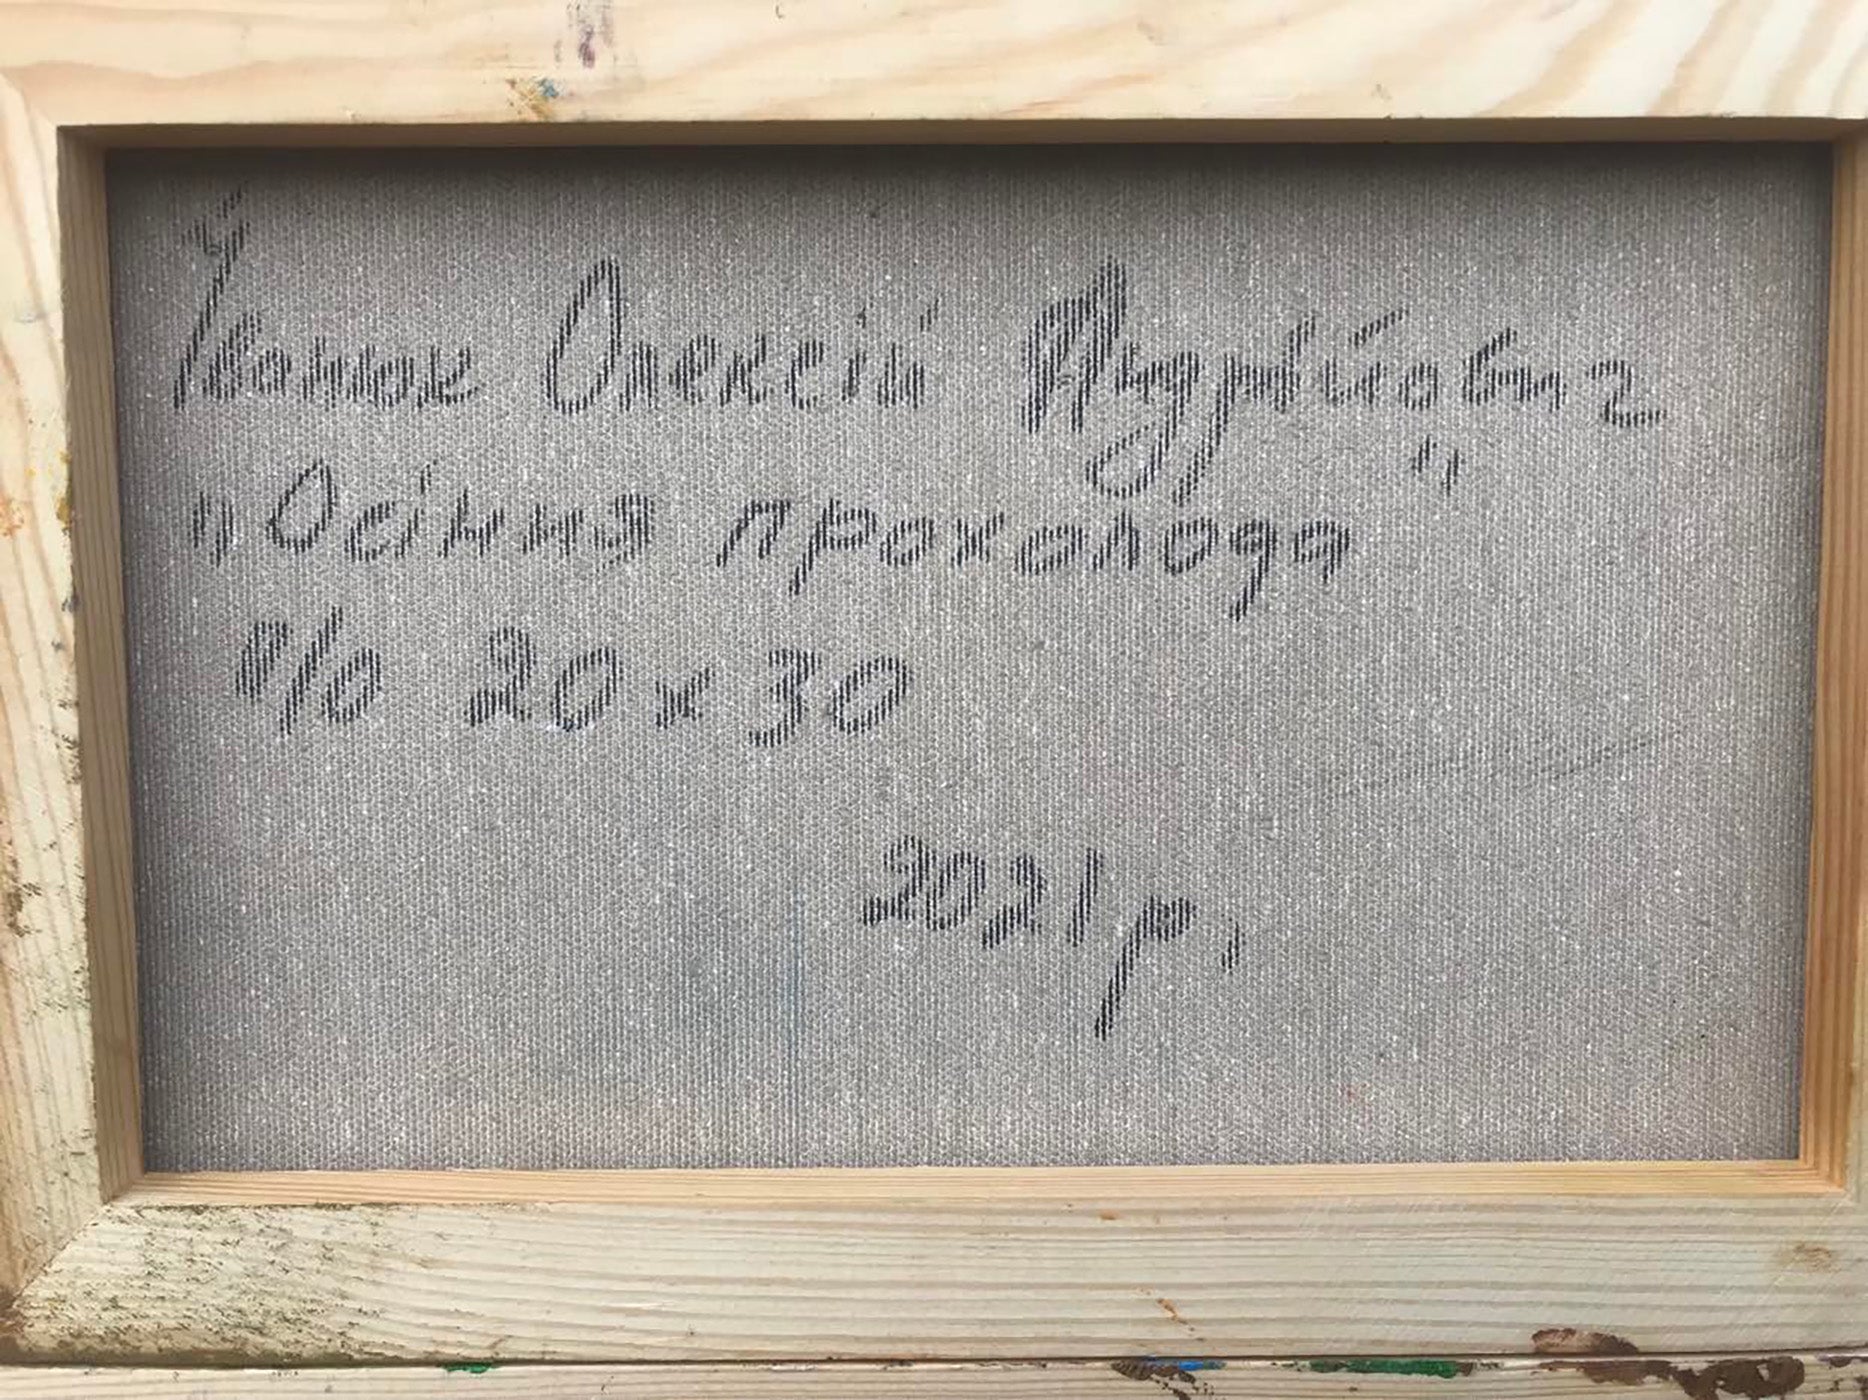 Іванюк Олексій Андрійович
„Осіння прохолода"
п/о 20x30
2021р.